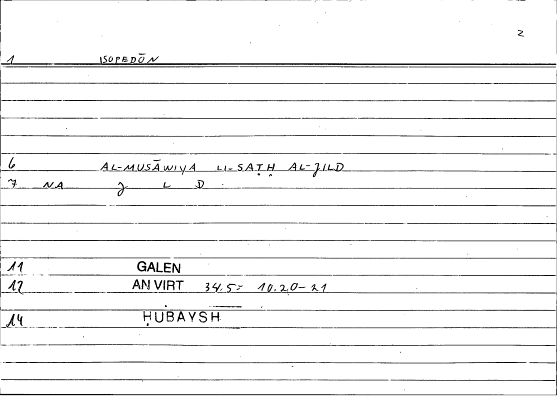 2
1 ISOPEDŌN
6 AL-MUSĀWIYA LI-SAṬḤ AL-JILD
7 NA J L D
11 GALEN
12 AN VIRT 34.5= 10.20-21
14 ḤUBAYSH